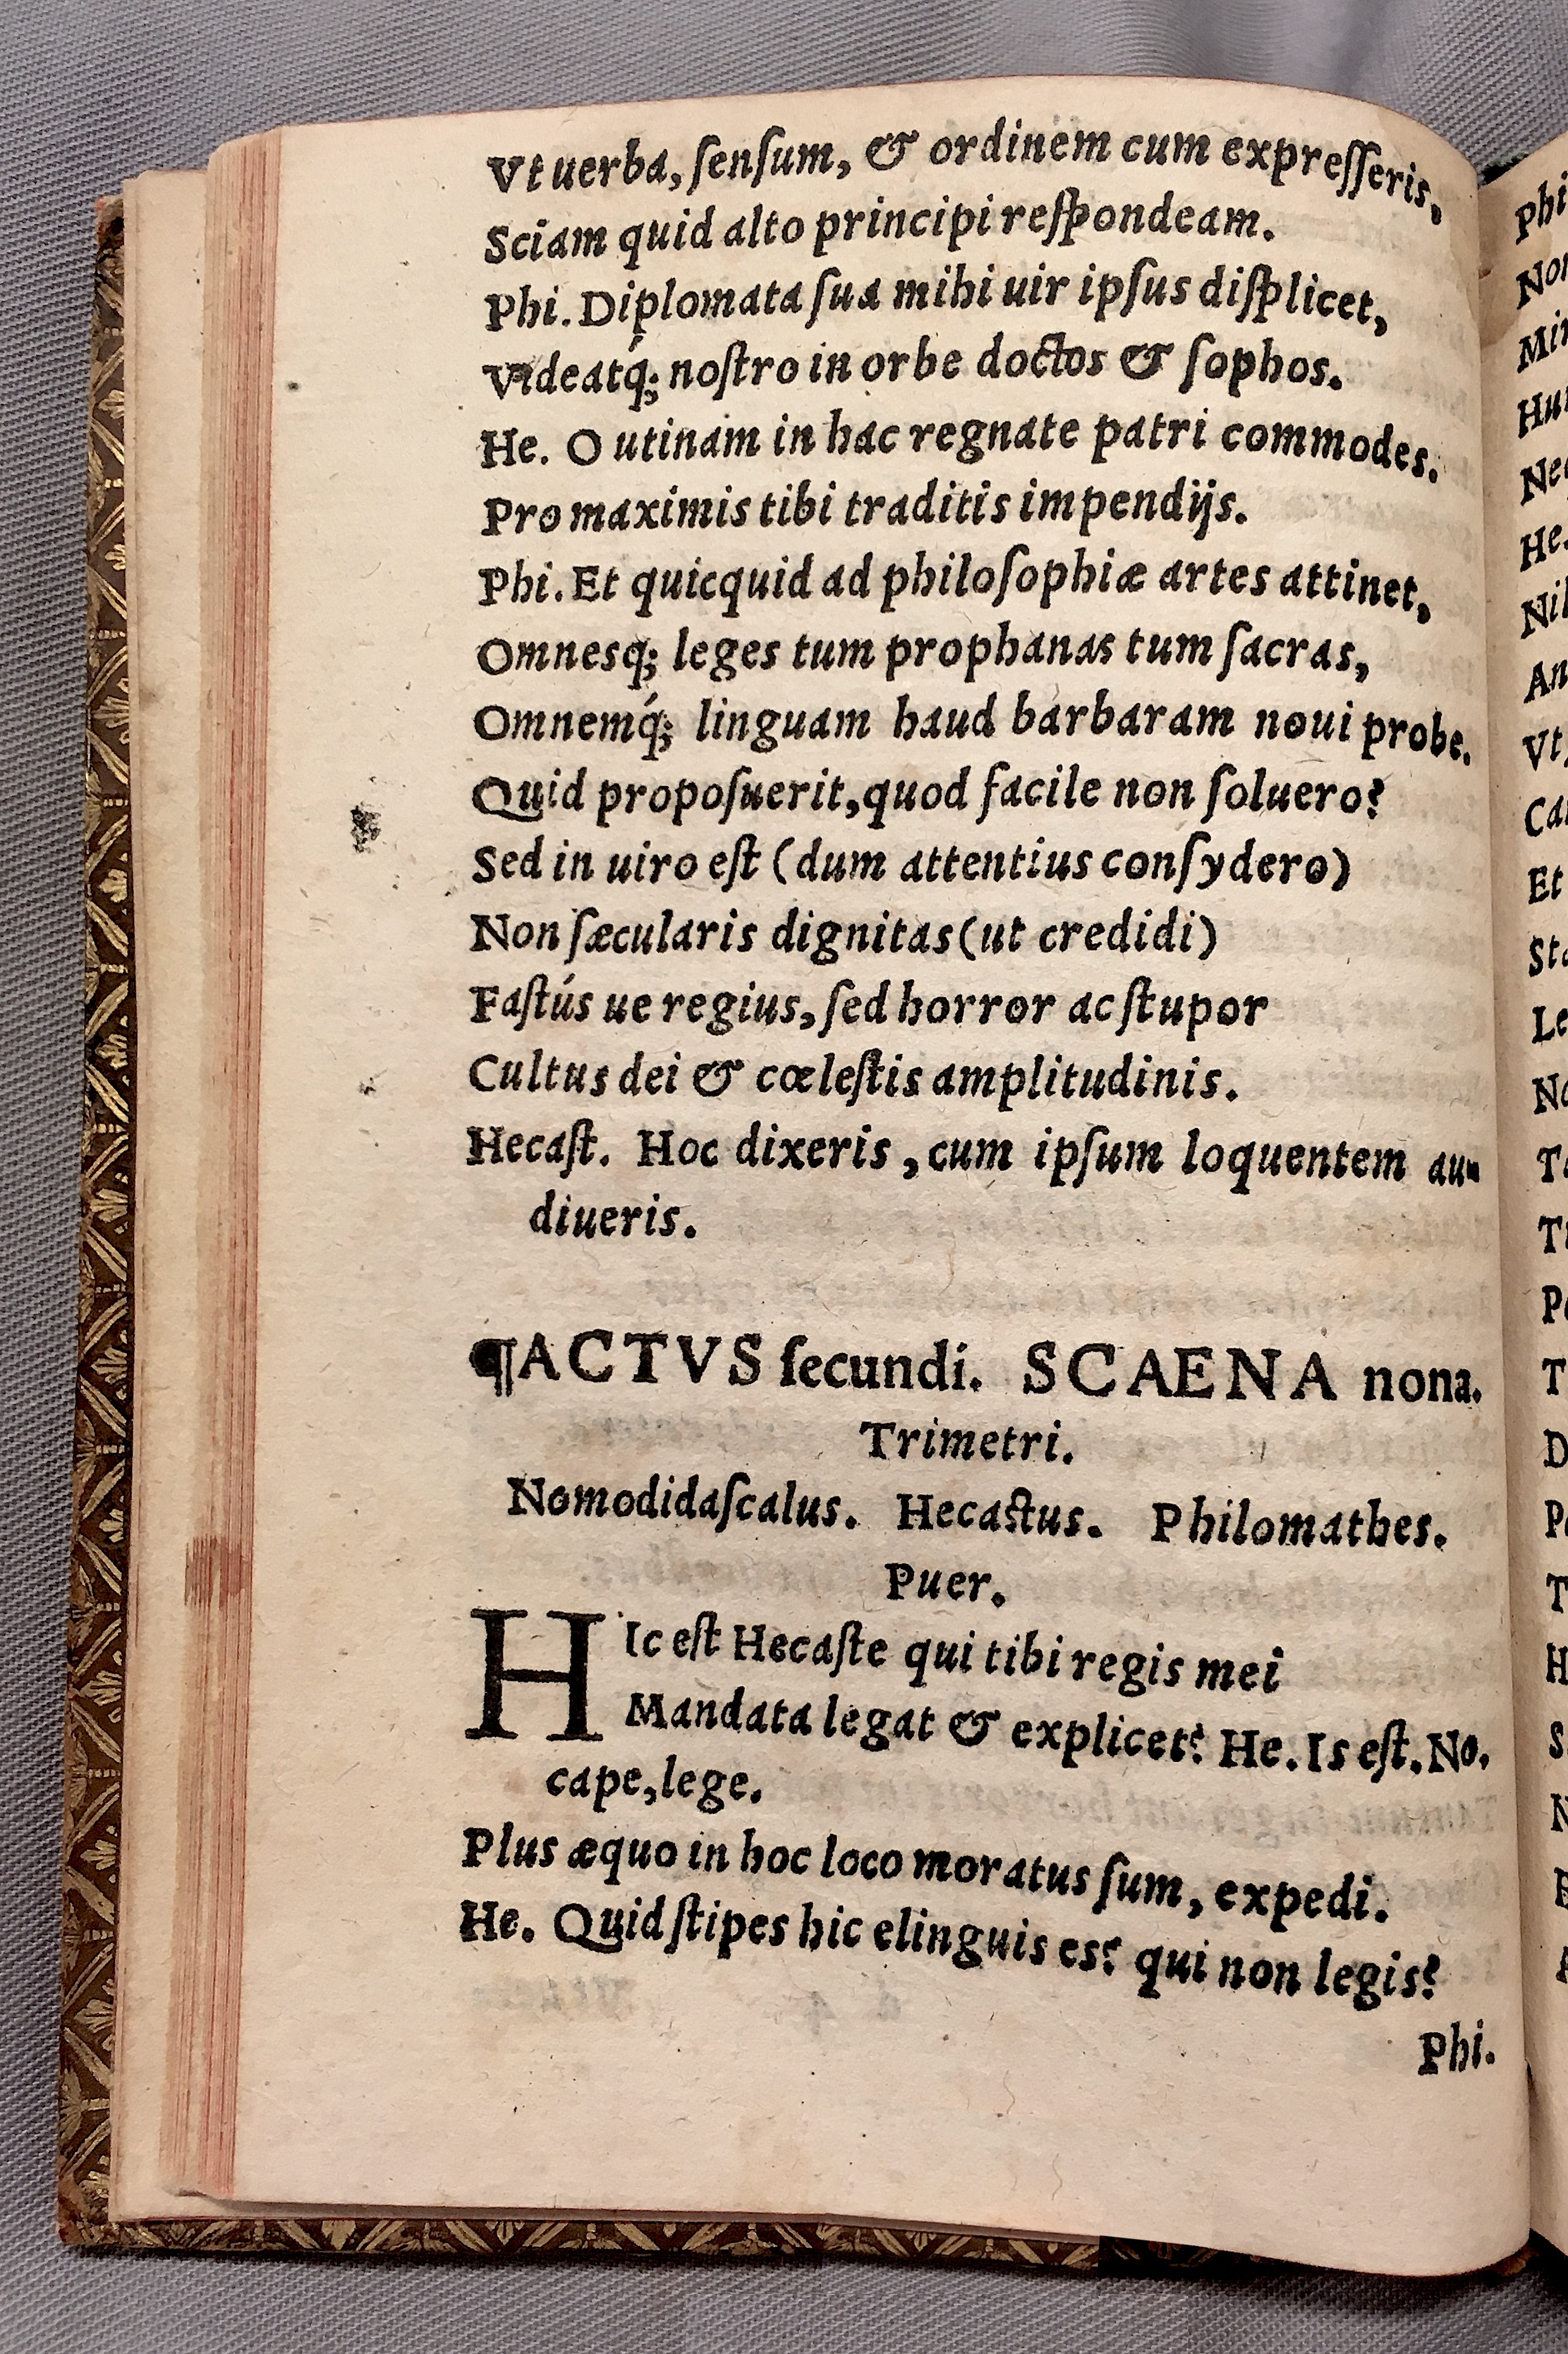 Vt uerba, ſenſum, & ordinem cum expreſſeris,
Sciam quid alto principi reſpondeam.
Phi. Diplomata ſua mihi uir ipſus diſplicet,
Videatq́; noſtro in orbe doctos & ſophos.
He. O utinam in hac regnate patri commodes.
Pro maximis tibi traditis impendijs.
Phi. Et quicquid ad philoſophiæ artes attinet,
Omnesq; leges tum prophanas tum ſacras,
Omnemq́; linguam haud barbaram noui probe.
Quid propoſuerit, quod facile non ſoluero?
Sed in uiro eſt (dum attentius conſydero)
Non ſæcularis dignitas (ut credidi)
Faſtús ue regius, ſed horror ac ſtupor
Cultus dei & cœleſtis amplitudinis.
Hecaſt. Hoc dixeris, cum ipſum loquentem au-
diueris.
¶ACTVS ſecundi. SCAENA nona.
Trimetri.
Nomodidaſcalus. Hecaſtus. Philomathes.
Puer.
HIc eſt Hecaſte qui tibi regis mei
Mandata legat & explicet? He. Is eſt. No.
cape, lege.
Plus æquo in hoc loco moratus ſum, expedi.
He. Quid ſtipes hic elinguis es? qui non legis?
Phi.